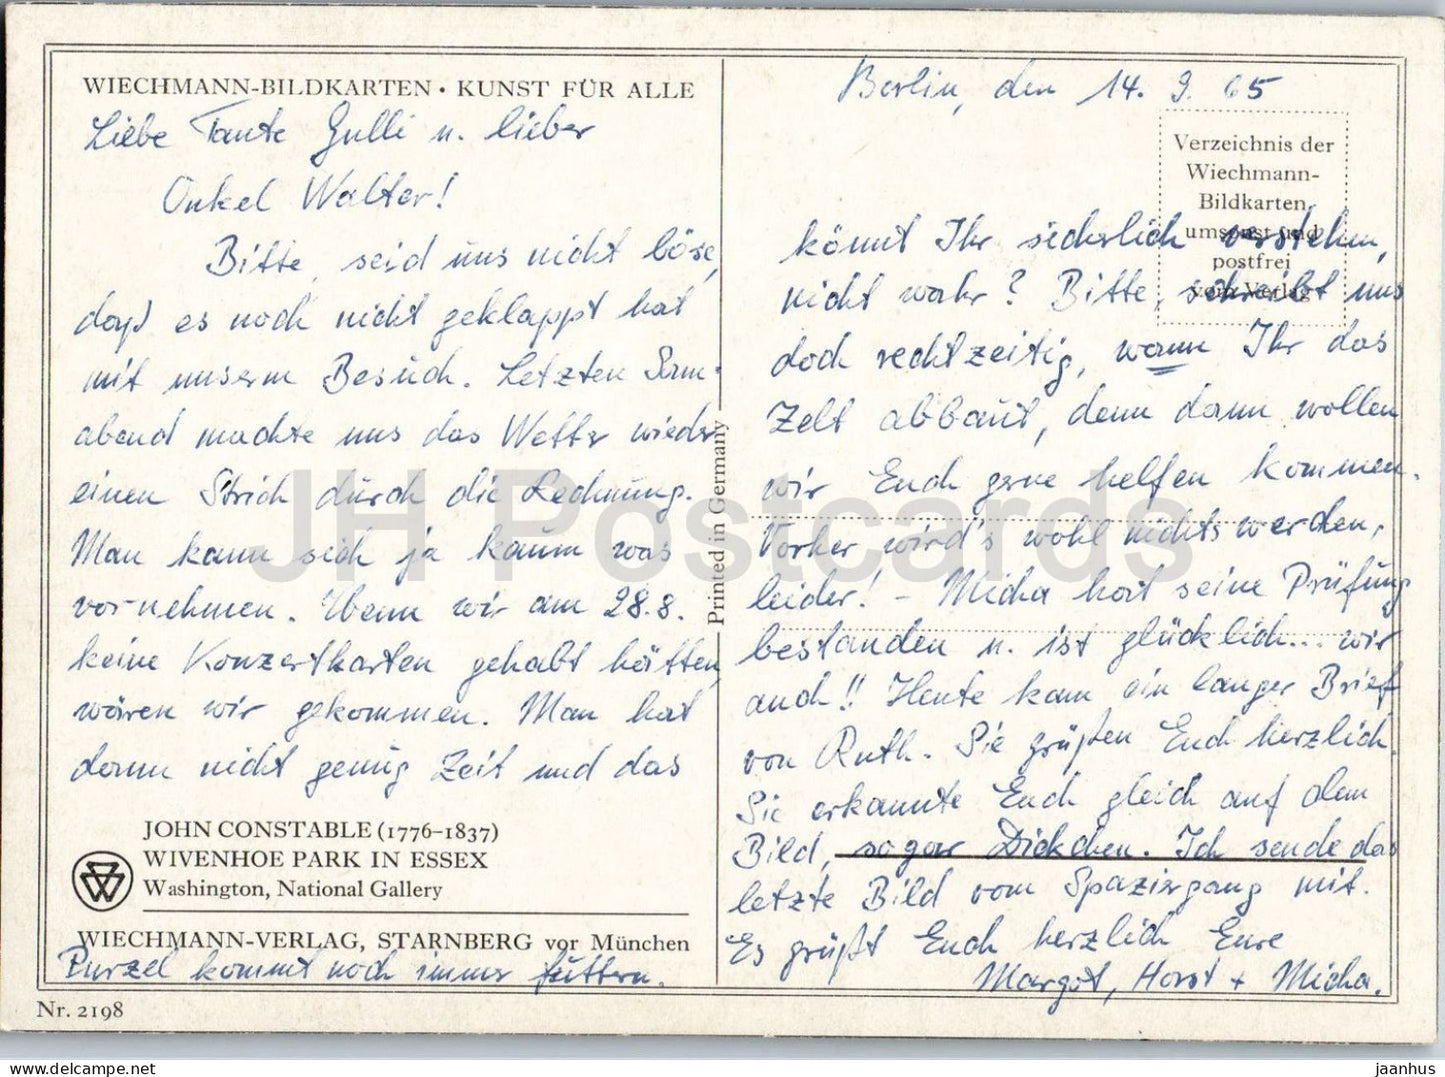 WIECHMANN-BILDKARTEN · KUNST FÜR ALLE
Liebe Tante Gulli u. lieber
Onkel Walter!
Bitte, seid uns nicht böse,
daß es noch nicht geklappt hat
mit unserm Besuch. Letzten Sonn-
abend machte uns das Wetter wieder
einen Strich durch die Rechnung.
Man kann sich ja kaum was
vornehmen. Wenn wir am 28.8.
keine Konzertkarten gehabt hätten,
wären wir gekommen. Man hat
dann nicht genug Zeit und das
JOHN CONSTABLE (1776-1837)
WIVENHOE PARK IN ESSEX
Washington, National Gallery
WIECHMANN-VERLAG, STARNBERG vor München
Purzel kommt noch immer futtern.
Nr. 2198
Printed in Germany
Berlin, den 14. 9. 65
Verzeichnis der
Wiechmann-
Bildkarten
umsonst und
postfrei
vom Verlag
könnt Ihr sicherlich verstehen,
nicht wahr? Bitte, schreibt uns
doch rechtzeitig, wann Ihr das
Zelt abbaut, denn dann wollen
wir Euch gerne helfen kommen.
Vorher wird's wohl nichts werden,
leider! - Micha hat seine Prüfung
bestanden u. ist glücklich... wir
auch!! Heute kam ein langer Brief
von Ruth. Sie grüßen Euch herzlich.
Sie erkannte Euch gleich auf dem
Bild, sogar Dickchen. Ich sende das
letzte Bild vom Spaziergang mit.
Es grüßt Euch herzlich Eure
Margot, Horst + Micha.
JH Postcards
hip.com
jaanhus